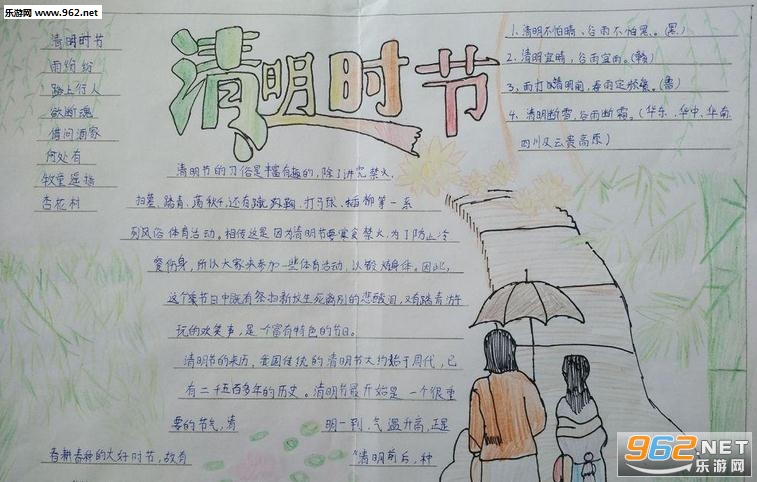 乐游网 www.962.net
清明时节
清明时节
雨纷纷
路上行人
欲断魂
借问酒家
何处有
牧童遥指
杏花村
1. 清明不怕晴，谷雨不怕黑。(黑)
2. 清明宜晴，谷雨宜雨。(赣)
3. 雨打清明前，春雨定频繁。(鲁)
4. 清明断雪，谷雨断霜。(华东、华中、华南
四川及云贵高原)
清明节的习俗是丰富有趣的，除了讲究禁火、
扫墓、踏青、荡秋千，还有蹴鞠、打马球、插柳等一系
列风俗体育活动。相传这是因为清明节要寒食禁火，为了防止冷
餐伤身，所以大家来参加一些体育活动，以锻炼身体。因此，
这个节日中既有祭扫新坟生死离别的悲酸泪，又有踏青游
玩的欢笑声，是一个富有特色的节日。
清明节的来历，我国传统的清明节大约始于周代，已
有二千五百多年的历史。清明节最开始是一个很重
要的节气，清 明一到，气温升高，正是
春耕春种的大好时节，故有 "清明前后，种
962.NET
乐游网